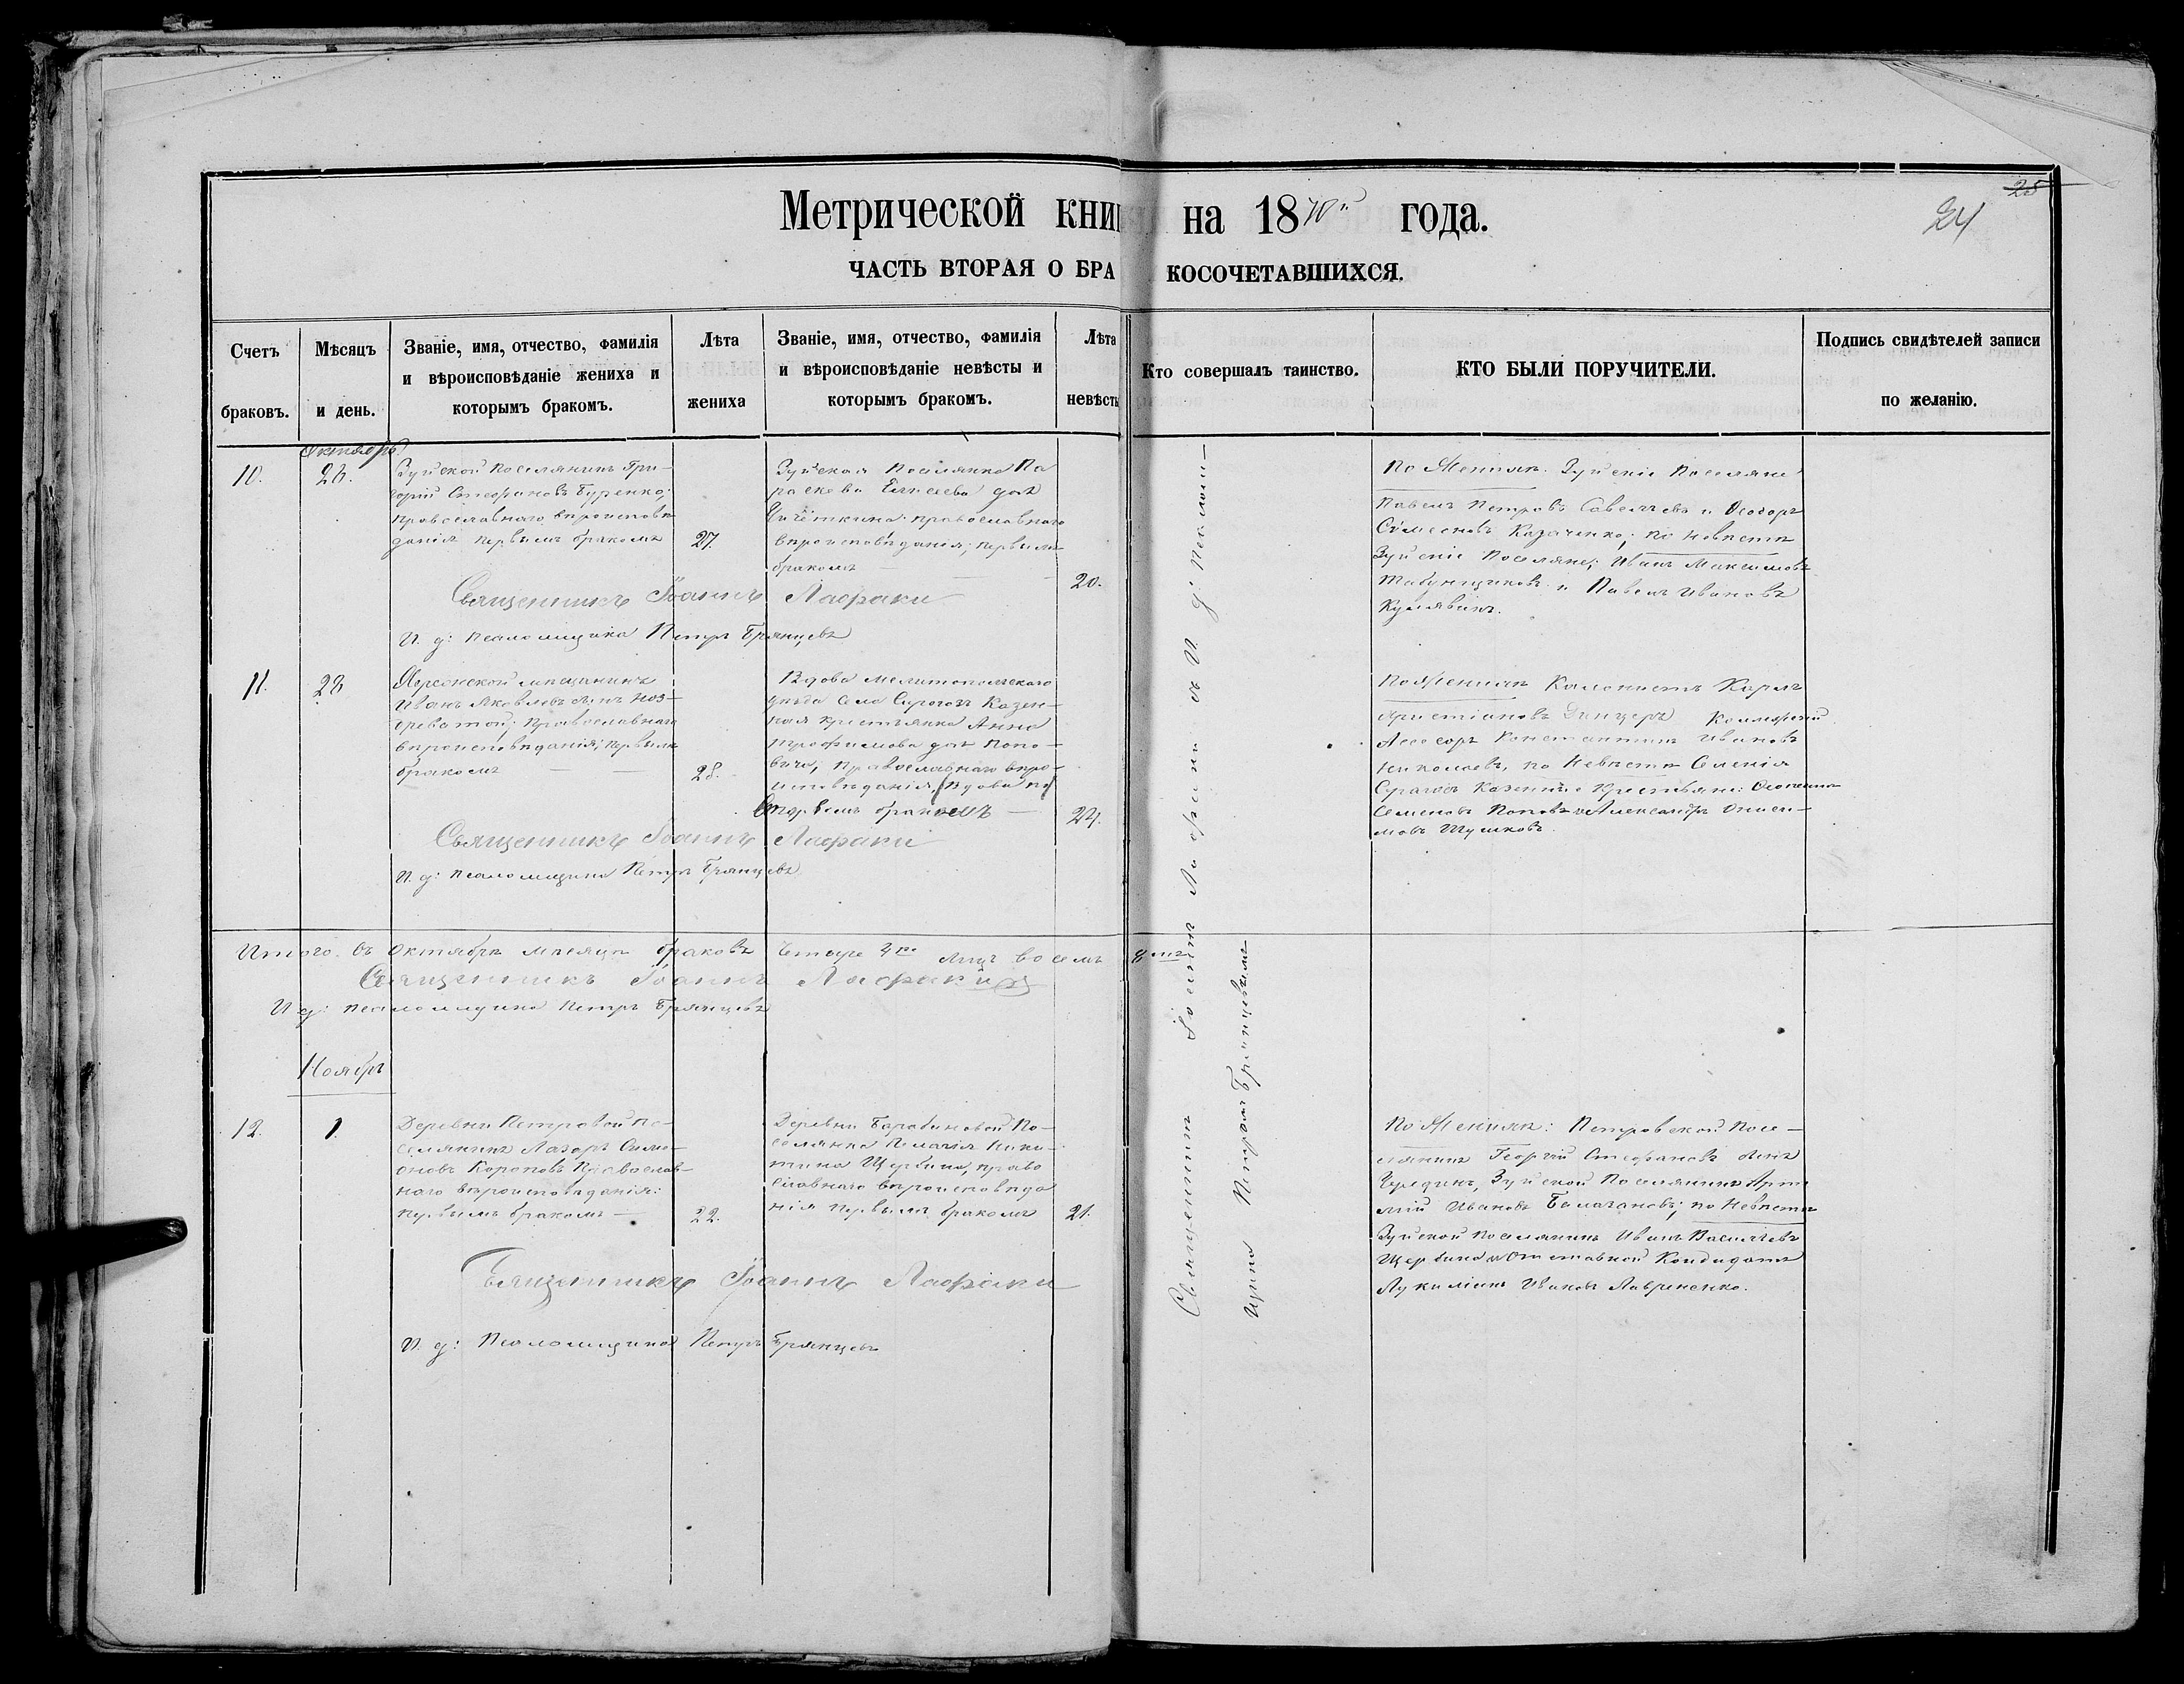 Метрической книги на 1870й года.
24
25
ЧАСТЬ ВТОРАЯ О БРАКОСОЧЕТАВШИХСЯ.
Счетъ браковъ.
Мѣсяцъ и день.
Званіе, имя, отчество, фамилія
и вѣроисповѣданіе жениха и
которымъ бракомъ.
Лѣта
жениха
Званіе, имя, отчество, фамилія
и вѣроисповѣданіе невѣсты и
которымъ бракомъ.
Лѣта
невѣсты
Кто совершалъ таинство.
КТО БЫЛИ ПОРУЧИТЕЛИ.
Подпись свидѣтелей записи
по желанію.
Октябрь
10.
28.
Зуйской поселянинъ Гри-
горій Стефановъ Буренко;
православнаго вѣроисповѣ
данія первымъ бракомъ
27.
Зуйская Поселянка Па
раскева Елисеева дочь
православнаго
вѣроисповѣданія; первымъ
бракомъ
20.
По Женихѣ: Зуйскіе Поселяне
Павелъ Петровъ Савельевъ и Ѳеодоръ
Сѵмеоновъ Казаченко; по невѣстѣ
Зуйскіе Поселяне; Иванъ Максимовъ
Табунщиковъ и Павелъ Ивановъ
Священникъ Іоаннъ Лафаки
И. д: псаломщика Петръ Брянцевъ
11.
28
Херсонской мѣщанинъ
Иванъ Яковлевъ сынъ Ноз-
древатой; православнаго
вѣроисповѣданія; первымъ
бракомъ
28.
Вдова Мелитопольскаго
уѣзда Села Серогозъ Казен-
ная крестьянка Анна
Трофимова дочь Попо-
вича, православнаго вѣро-
исповѣданія, (вдова по)
вторымъ бракомъ
24.
По Женихѣ Колонистъ Карлъ
Христіановъ Коллежскій
Ассесоръ Константинъ Ивановъ
Николаевъ, по Невѣстѣ Селенія
Казенные крестьяне:
Семеновъ Поповъ и АлександръОниси-
мовъ Шушковъ.
Священникъ Іоаннъ Лафаки
И. д: псаломщика Петръ Брянцевъ
Итого въ Октябрѣ мѣсяцѣ браковъ Четыре 4ре лицъ восемь 8мь
Священникъ Іоаннъ Лафаки
И д: псаломщика Петръ Брянцевъ
Ноябрь
12.
1.
Деревни Петровой по-
селянинъ Лазарь Симе-
оновъ Короповъ Православ-
наго вѣроисповѣданія:
первымъ бракомъ
22.
Деревни Барабановой По-
селянка Пелагія Ники-
тина Щербина, право
славнаго вѣроисповѣда
нія первымъ бракомъ
21.
По Женихѣ: Петровской Посе-
лянинъ Георгій Стефановъ сынъ
Зуйской Поселянинъ Арте
мій Ивановъ Балагановъ; по Невѣстѣ
Зуйской поселянинъ Иванъ Васильевъ
Щербина и Отставной Кандидатъ
Лукиліанъ Ивановъ Лавриненко.
Священникъ Іоаннъ Лафаки
И. д: Псаломщика Петръ Брянцевъ
Священникъ Іоаннъ Лафаки съ И д: Псалом-
щика Петромъ Брянцевымъ